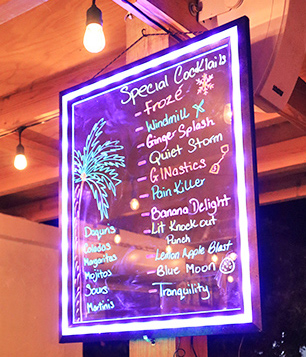 Special Cocktails
- Frozé
- Windmill
- Ginger Splash
- Quiet Storm
- GINastics
- Pain Killer
- Banana Delight
- Lit Knock out
Punch
- Lemon Apple Blast
- Blue Moon
- Tranquility
Daquiris
Koladas
Margaritas
Mojitos
Sours
Martinis